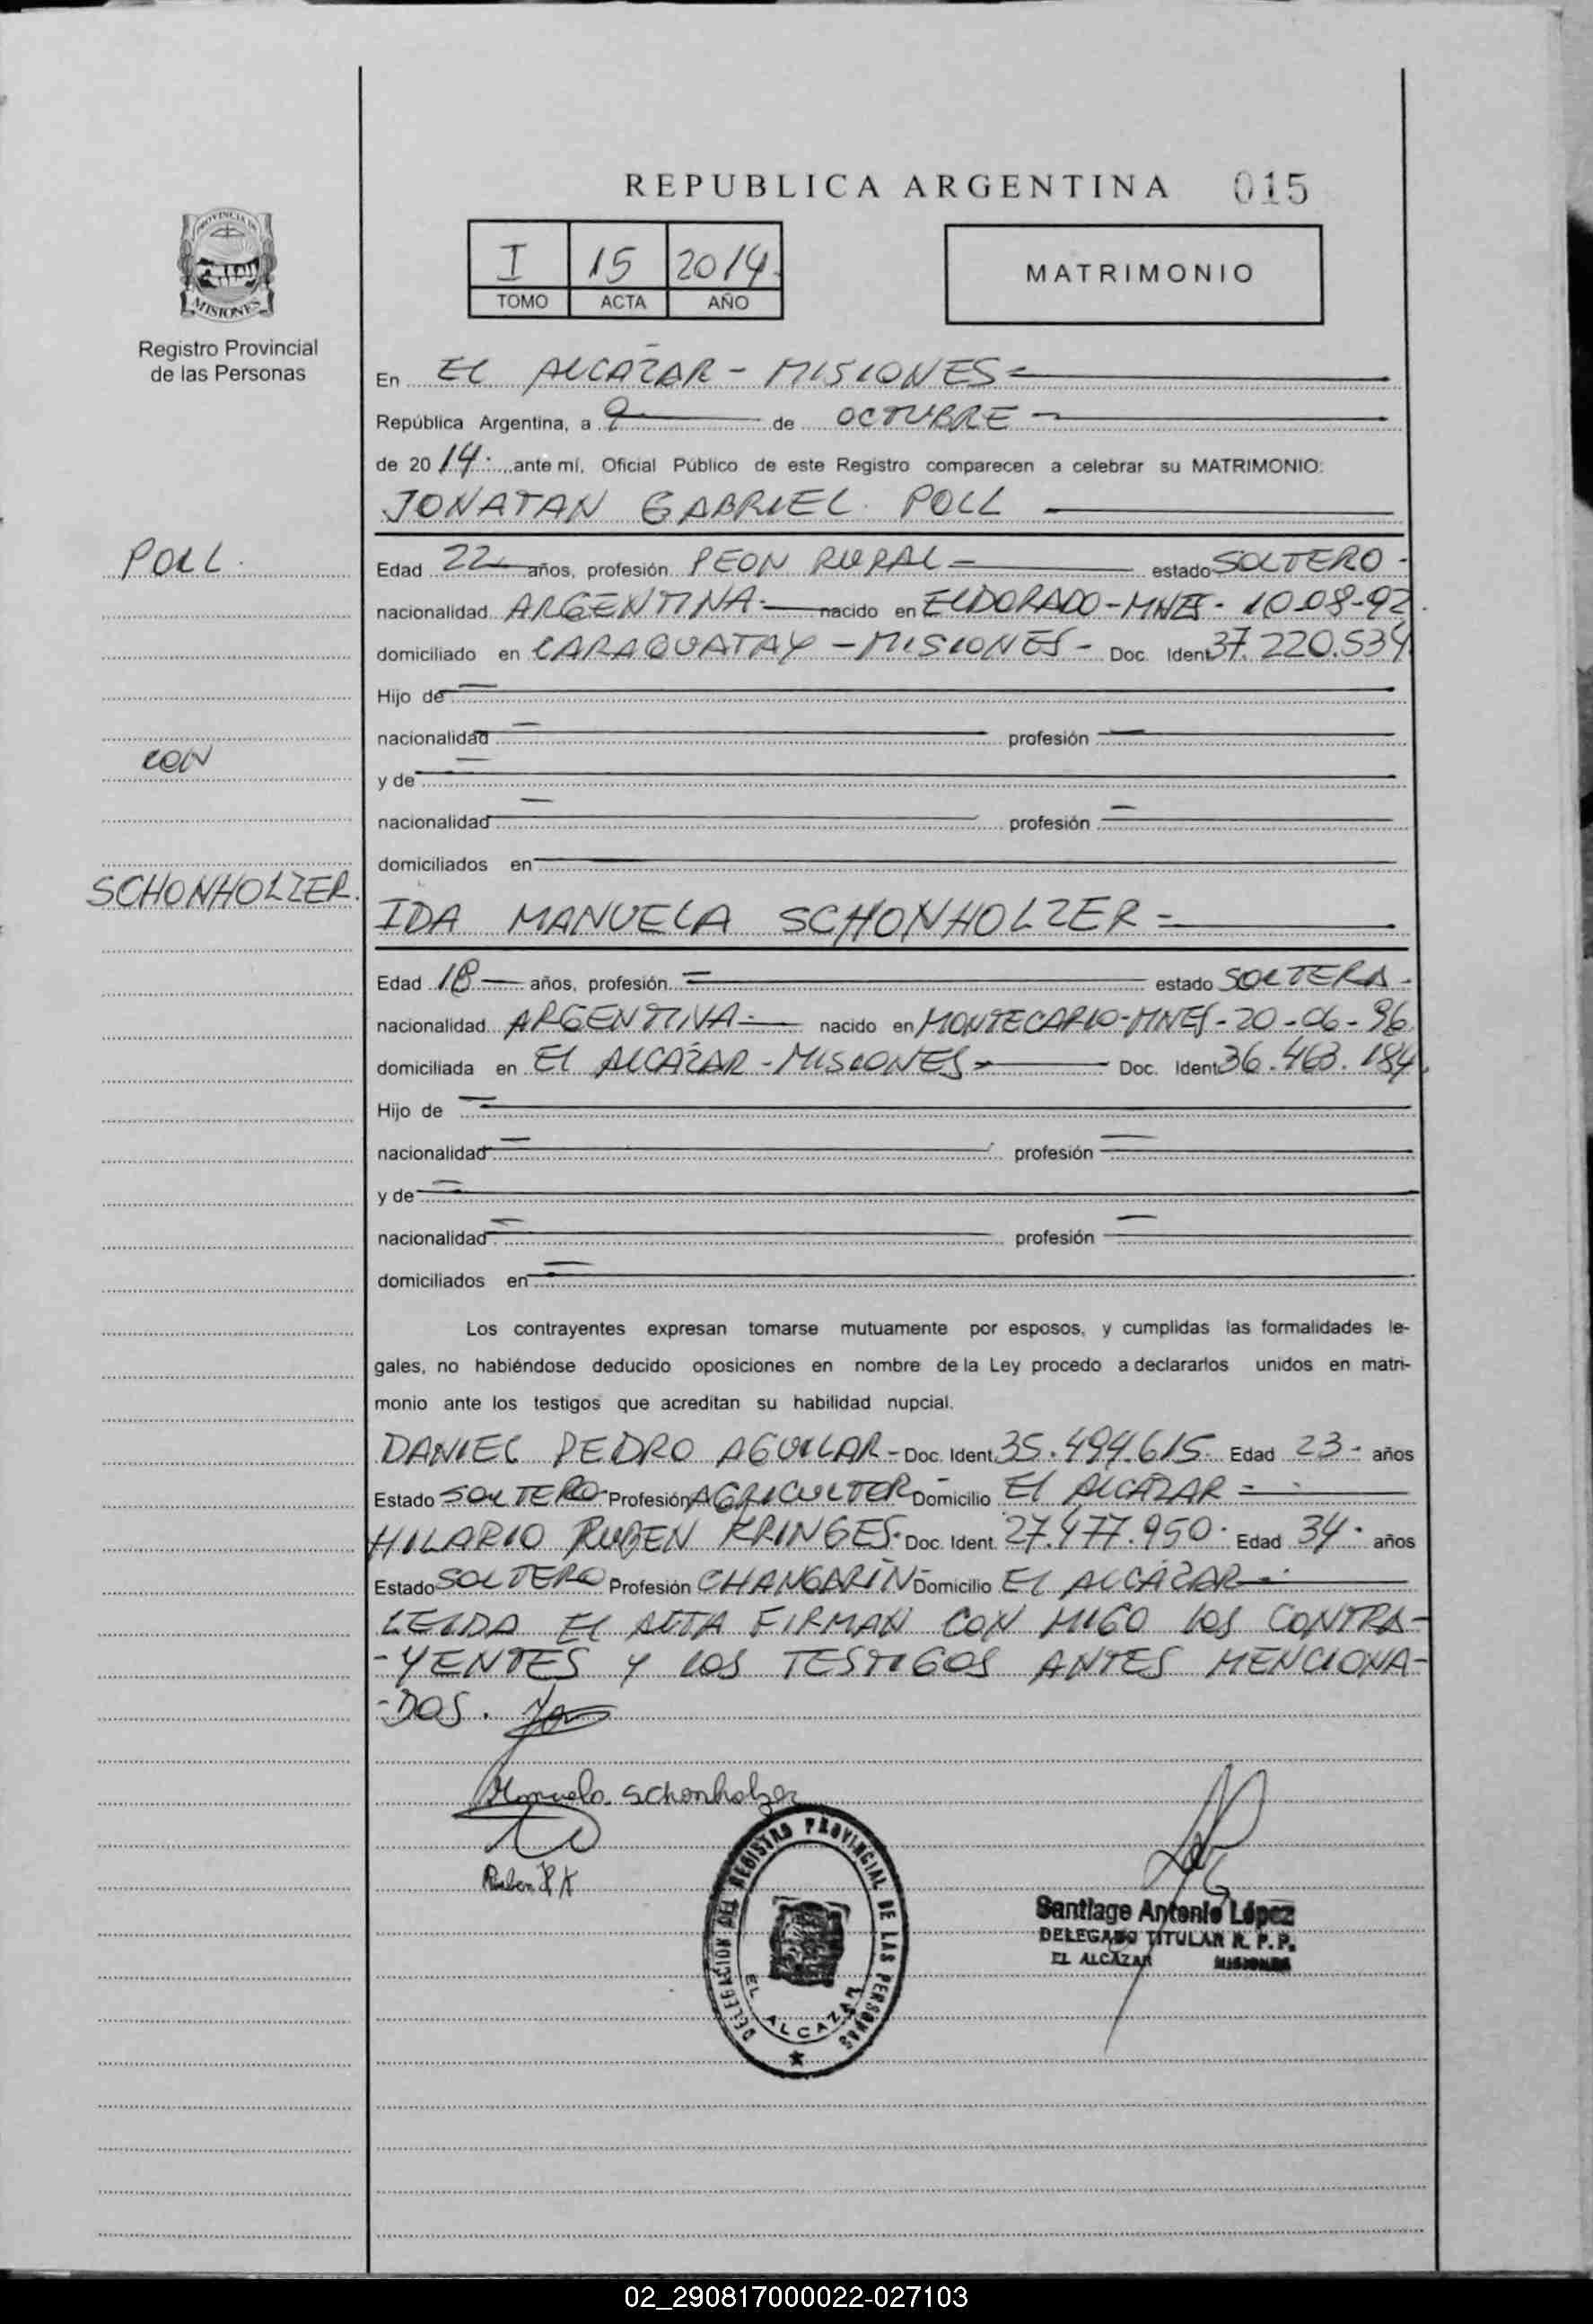 REPUBLICA ARGENTINA 015
PROVINCIA DE
MISIONES
Registro Provincial
de las Personas
I 15 2014.
TOMO ACTA AÑO
MATRIMONIO
En EL ALCAZAR - MISIONES =
República Argentina, a 9 de OCTUBRE
de 2014. ante mí, Oficial Público de este Registro comparecen a celebrar su MATRIMONIO:
JONATAN GABRIEL POLL
POLL.
Edad 22 años, profesión PEON RURAL = estado SOLTERO -
nacionalidad ARGENTINA.- nacido en ELDORADO-MNES- 10-08-92.
domiciliado en CARAGUATAY - MISIONES - Doc. Ident 37.220.534
Hijo de
nacionalidad profesión
CON
y de
nacionalidad profesión
domiciliados en
SCHONHOLZER.
IDA MANUELA SCHONHOLZER =
Edad 18 años, profesión = estado SOLTERA -
nacionalidad ARGENTINA.- nacido en MONTECARLO-MNES-20-06-96
domiciliada en El ALCAZAR - MISIONES = Doc. Ident 36.463.184.
Hijo de
nacionalidad profesión
y de
nacionalidad profesión
domiciliados en
Los contrayentes expresan tomarse mutuamente por esposos, y cumplidas las formalidades le-
gales, no habiéndose deducido oposiciones en nombre de la Ley procedo a declararlos unidos en matri-
monio ante los testigos que acreditan su habilidad nupcial.
DANIEL PEDRO AGUILAR - Doc. Ident. 35.494.615. Edad 23- años
Estado SOLTERO Profesión AGRICULTOR Domicilio El ALCAZAR =
HILARIO RUBEN KRINGES. Doc. Ident. 27.477.950. Edad 34. años
Estado SOLTERO Profesión CHANGARIN Domicilio El ALCAZAR
LEIDA El ACTA FIRMAN CON MIGO los CONTRA-
-YENTES Y LOS TESTIGOS ANTES MENCIONA-
-DOS.
Manuela Schonholzer
Ruben
DELEGACION DEL REGISTRO PROVINCIAL DE LAS PERSONAS
EL ALCAZAR
Santiago Antonio López
DELEGADO TITULAR R. P. P.
EL ALCAZAR MISIONES
02_290817000022-027103